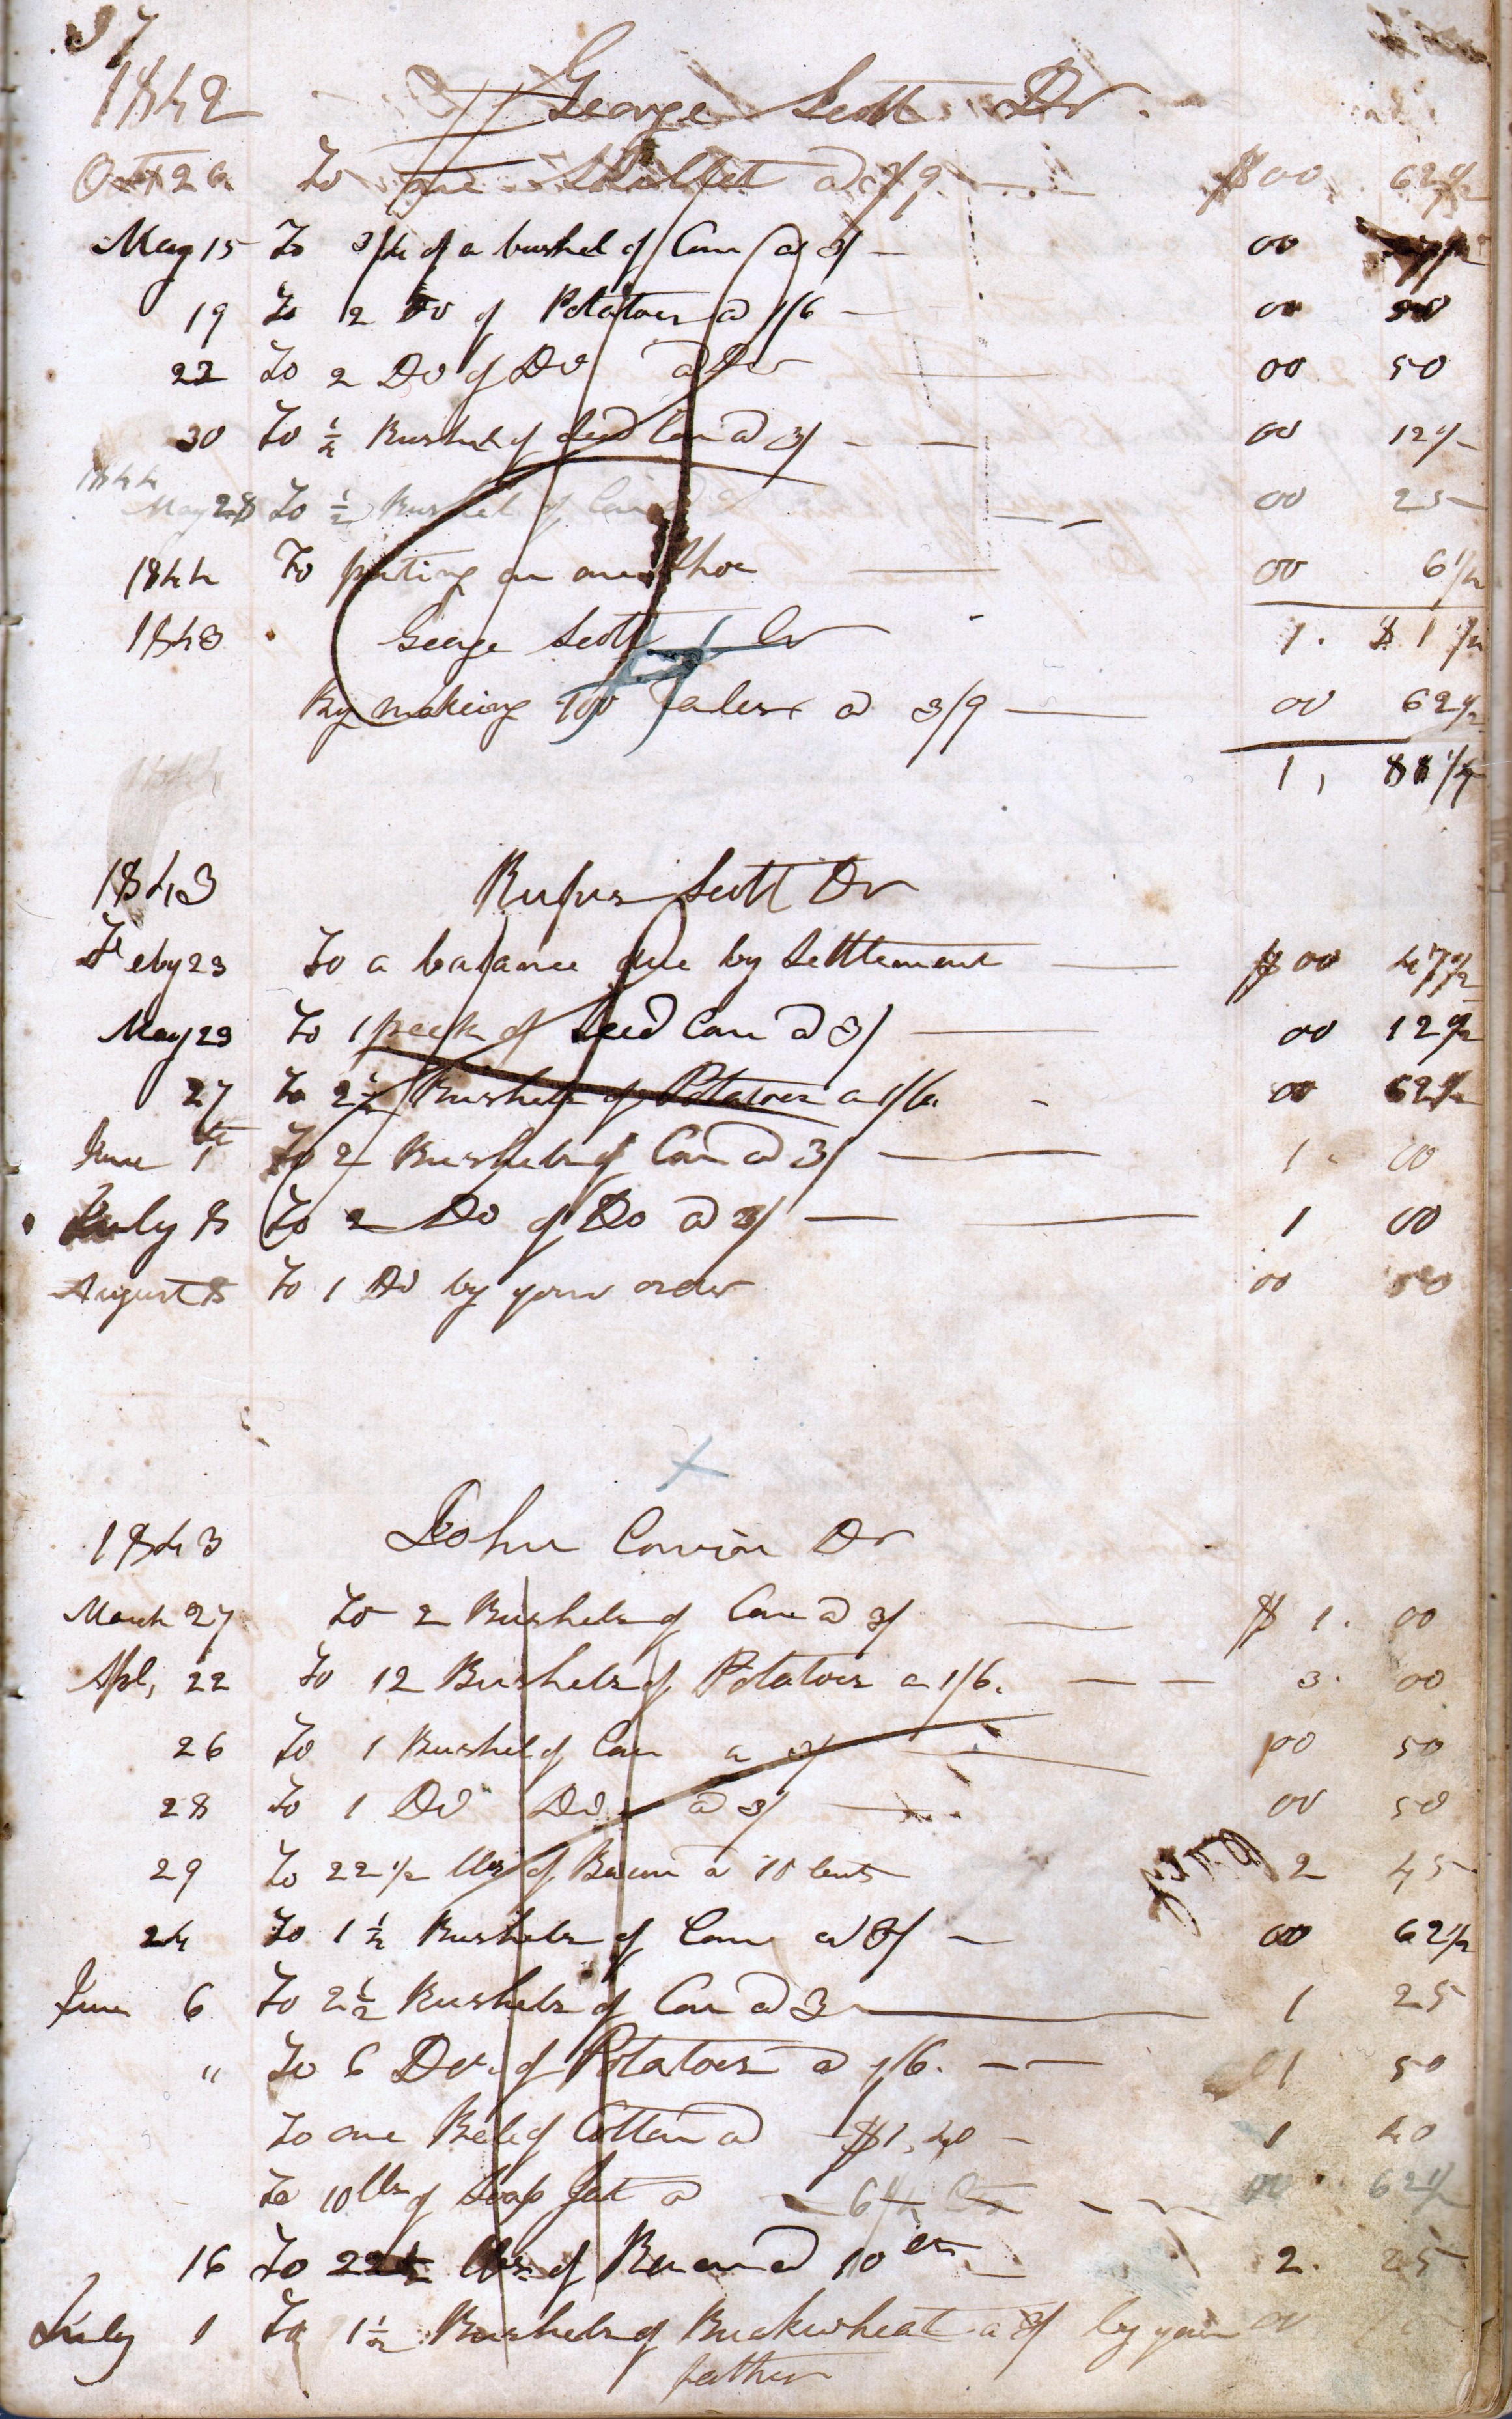 37
1842 George Scott Dr
Oct 26 To one Skillet a 3/9 $00 62 1/2
May 15 To 3/4 of a bushel of Corn a 3/ 00
19 To 2 Do of Potatoes a 1/6 00 50
22 To 2 Do of Do a Do 00 50
30 To 1/4 Bushel of seed Corn a 3/ 00 12 1/2
1844
May 28 To 1/2 Bushel of Corn 00 25
1844 To puting on one Shoe 00 6 1/4
1843 George Scott Cr 1.
By making 100 a 3/9 00 62 1/2
1,
1844
1843 Rufus Scott Dr
Feby 23 To a balance due by Settlement $00 47 1/2
May 23 To 1 peck of Seed Corn a 3/ 00 12 1/2
27 To 2 1/2 Bushels of Potatoes a 1/6. 00 62 1/2
June 1st To 2 Bushels of Corn a 3/ 1. 00
July 8 To 2 Do of Do a 3/ 1 00
August 8 To 1 Do by your order 00 50
1843 John Dr
March 27 To 2 Bushels of Corn a 3/ $1. 00
Apl, 22 To 12 Bushels of Potatoes a 1/6. 3. 00
26 To 1 Bushel of Corn a 3/ 00 50
28 To 1 Do Do a 3/ 00 50
29 To 22 1/2 lbs of Bacon a 10 Cents 2 45
24 To 1 1/4 Bushels of Corn a 3/ 00 62 1/2
June 6 To 2 1/2 Bushels of Corn a 3 1 25
" To 6 Do. of Potatoes a 1/6. 1 50
To one Bale of Cotton a $1,40 1 40
To 10 lbs of Soap fat a 6 1/4 Cts 00 62 1/2
16 To 22 1/2 lbs of Bacon a 10 cts 2. 25
July 1 To 1 1/2 Bushels of Buckwheat a 3/ by your 00
father